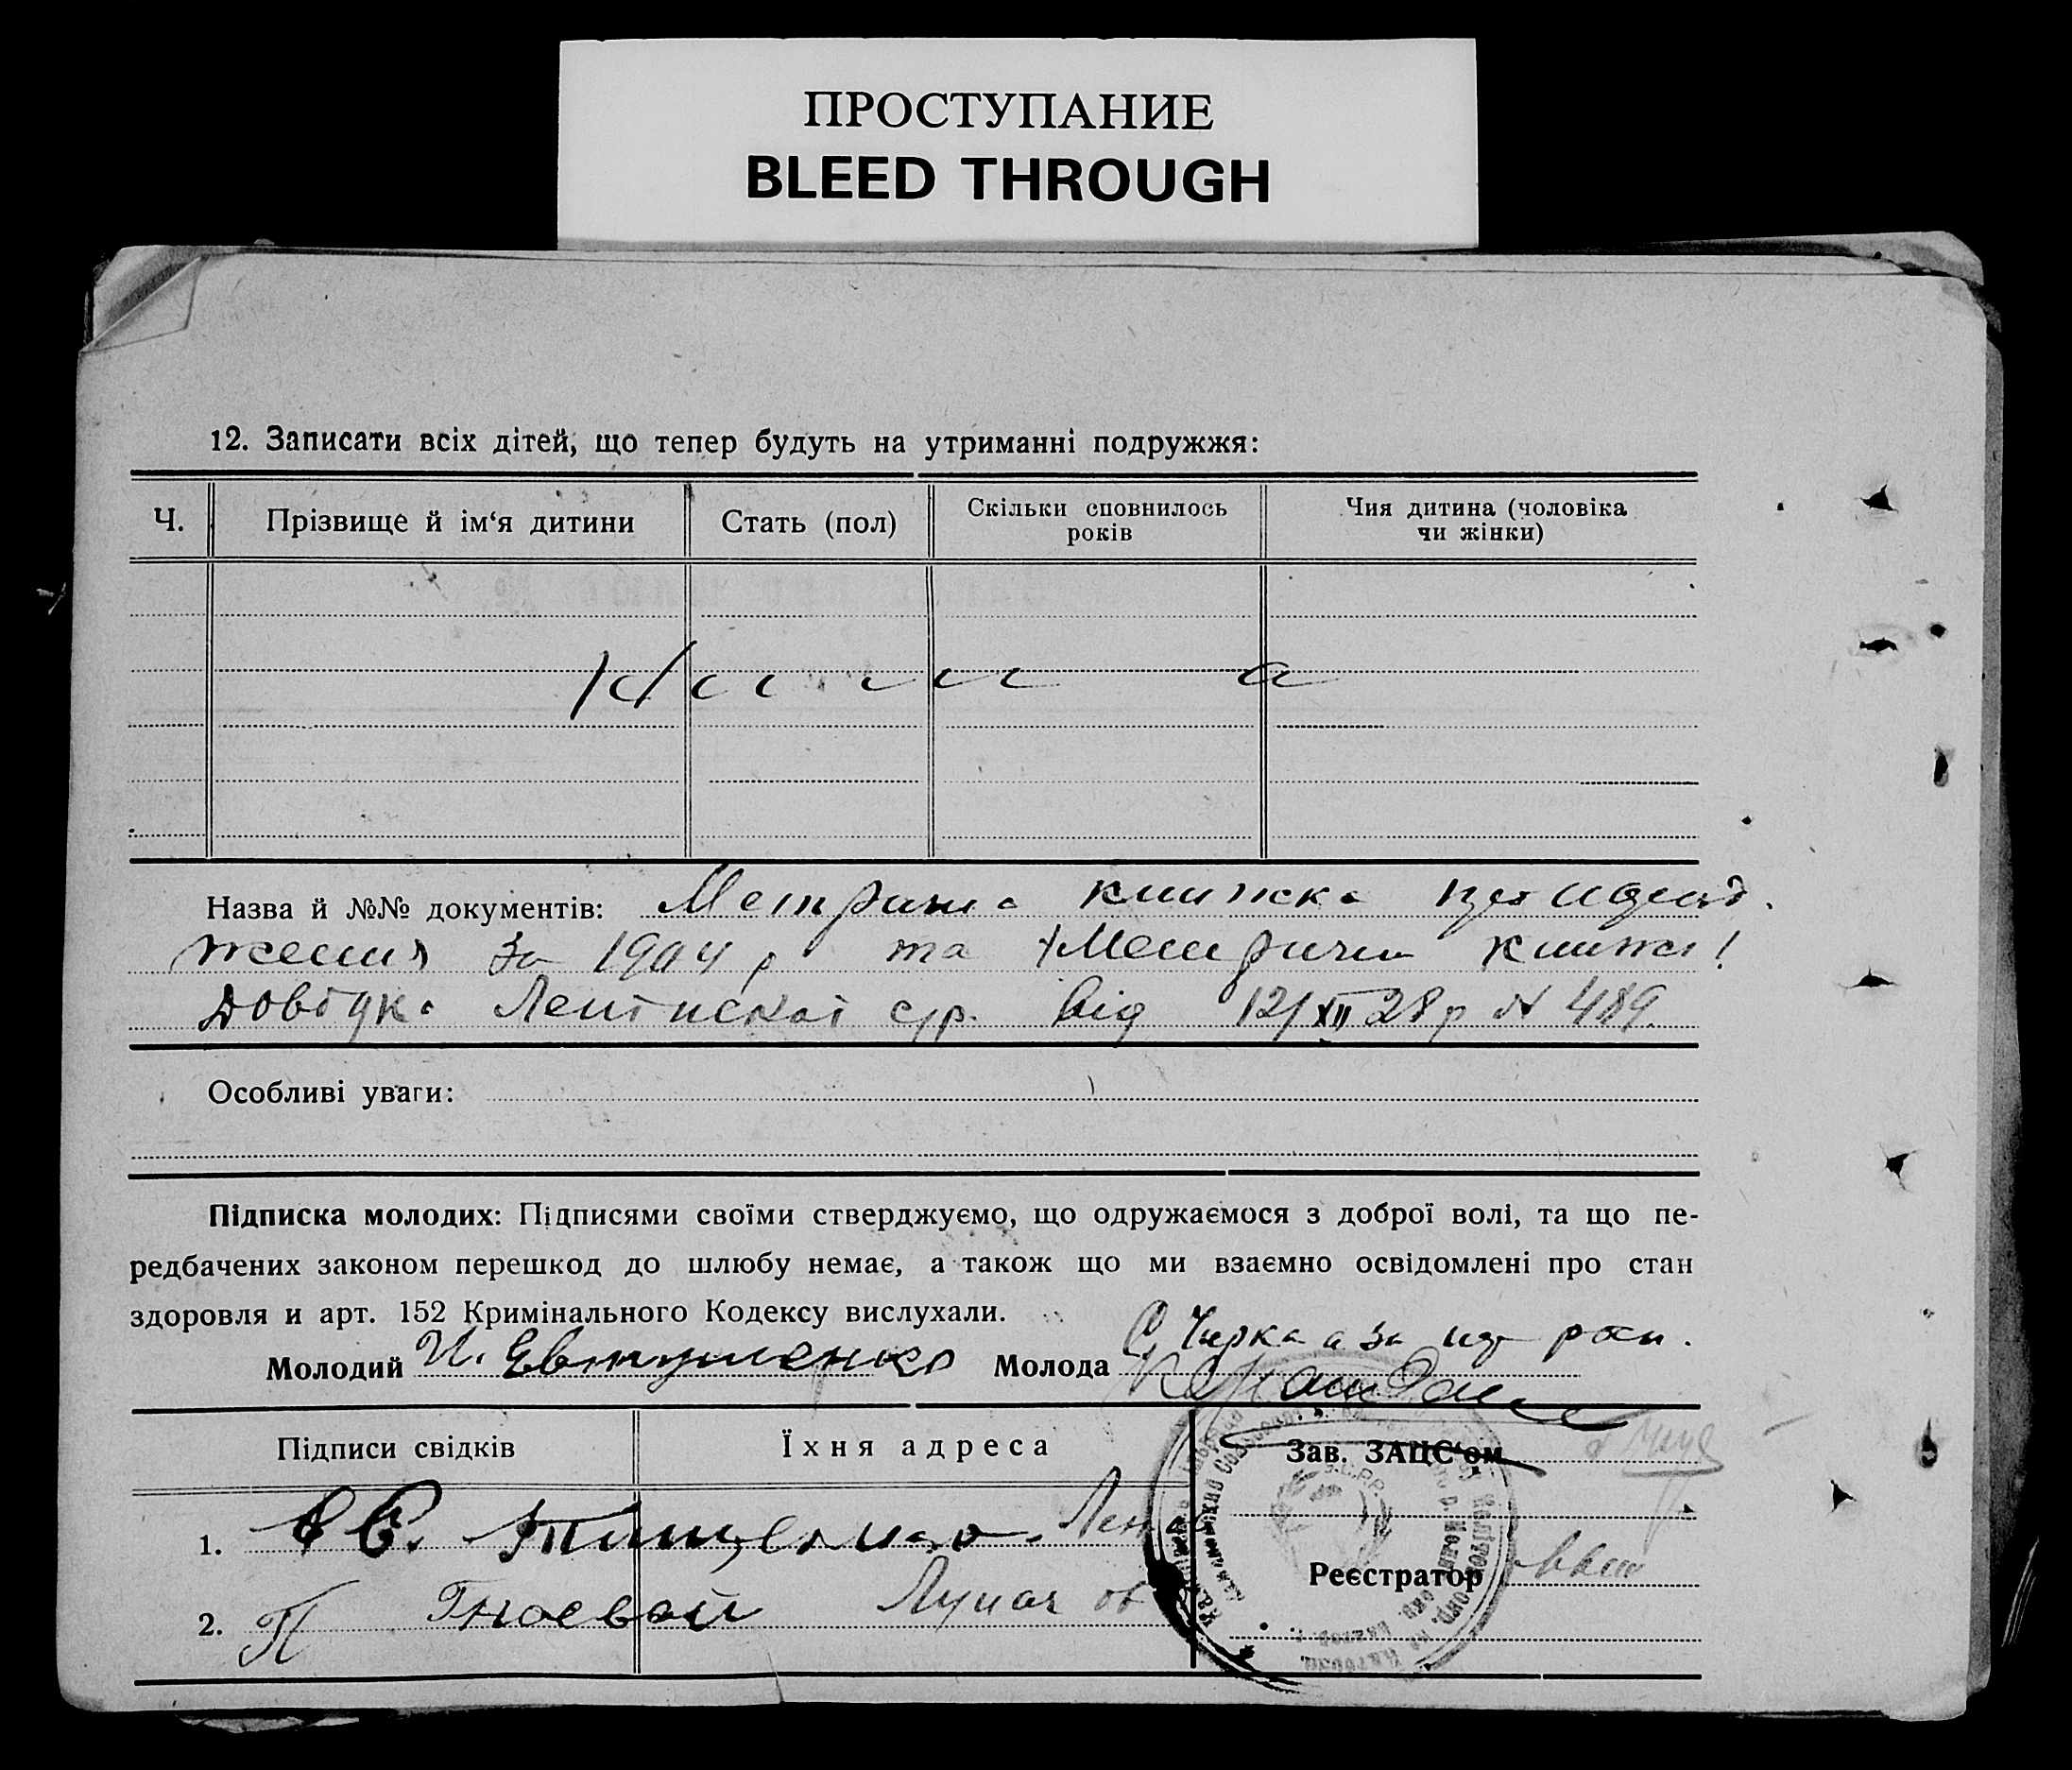 ПРОСТУПАНИЕ
BLEED THROUGH
12. Записати всіх дітей, що тепер будуть на утриманні подружжя:
Ч. Прізвище й ім‘я дитини Стать (пол) Скільки сповнилось років Чия дитина (чоловіка чи жінки)
Назва й №№ документів: Метрична книжка
за 1904 р та Метрична книжка
Довідка с/р. від 12/XII 28 р № 489.
Особливі уваги:
Підписка молодих: Підписями своїми стверджуємо, що одружаємося з доброї волі, та що пе-
редбачених законом перешкод до шлюбу немає, а також що ми взаємно освідомлені про стан
здоровля и арт. 152 Кримінального Кодексу вислухали.
Молодий И. Евтушенко Молода
Підписи свідків Їхня адреса Зав. ЗАЦС‘ом
1.
Реєстратор
2. П Гноевой